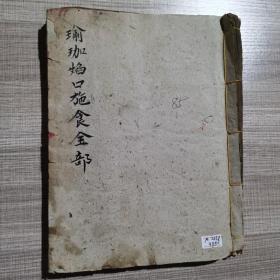 瑜珈焰口施食全部
85